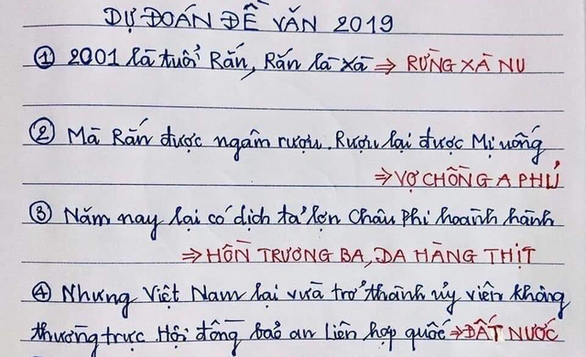 DỰ ĐOÁN ĐỀ VĂN 2019
① 2001 là tuổi Rắn, Rắn là Xà ⇒ RỪNG XÀ NU
② Mà Rắn được ngâm rượu. Rượu lại được Mị uống
⇒ VỢ CHỒNG A PHỦ
③ Năm nay lại có dịch tả lợn Châu Phi hoành hành
⇒ HỒN TRƯƠNG BA, DA HÀNG THỊT
④ Nhưng Việt Nam lại vừa trở thành ủy viên không
thường trực Hội đồng bảo an Liên hợp quốc ⇒ ĐẤT NƯỚC